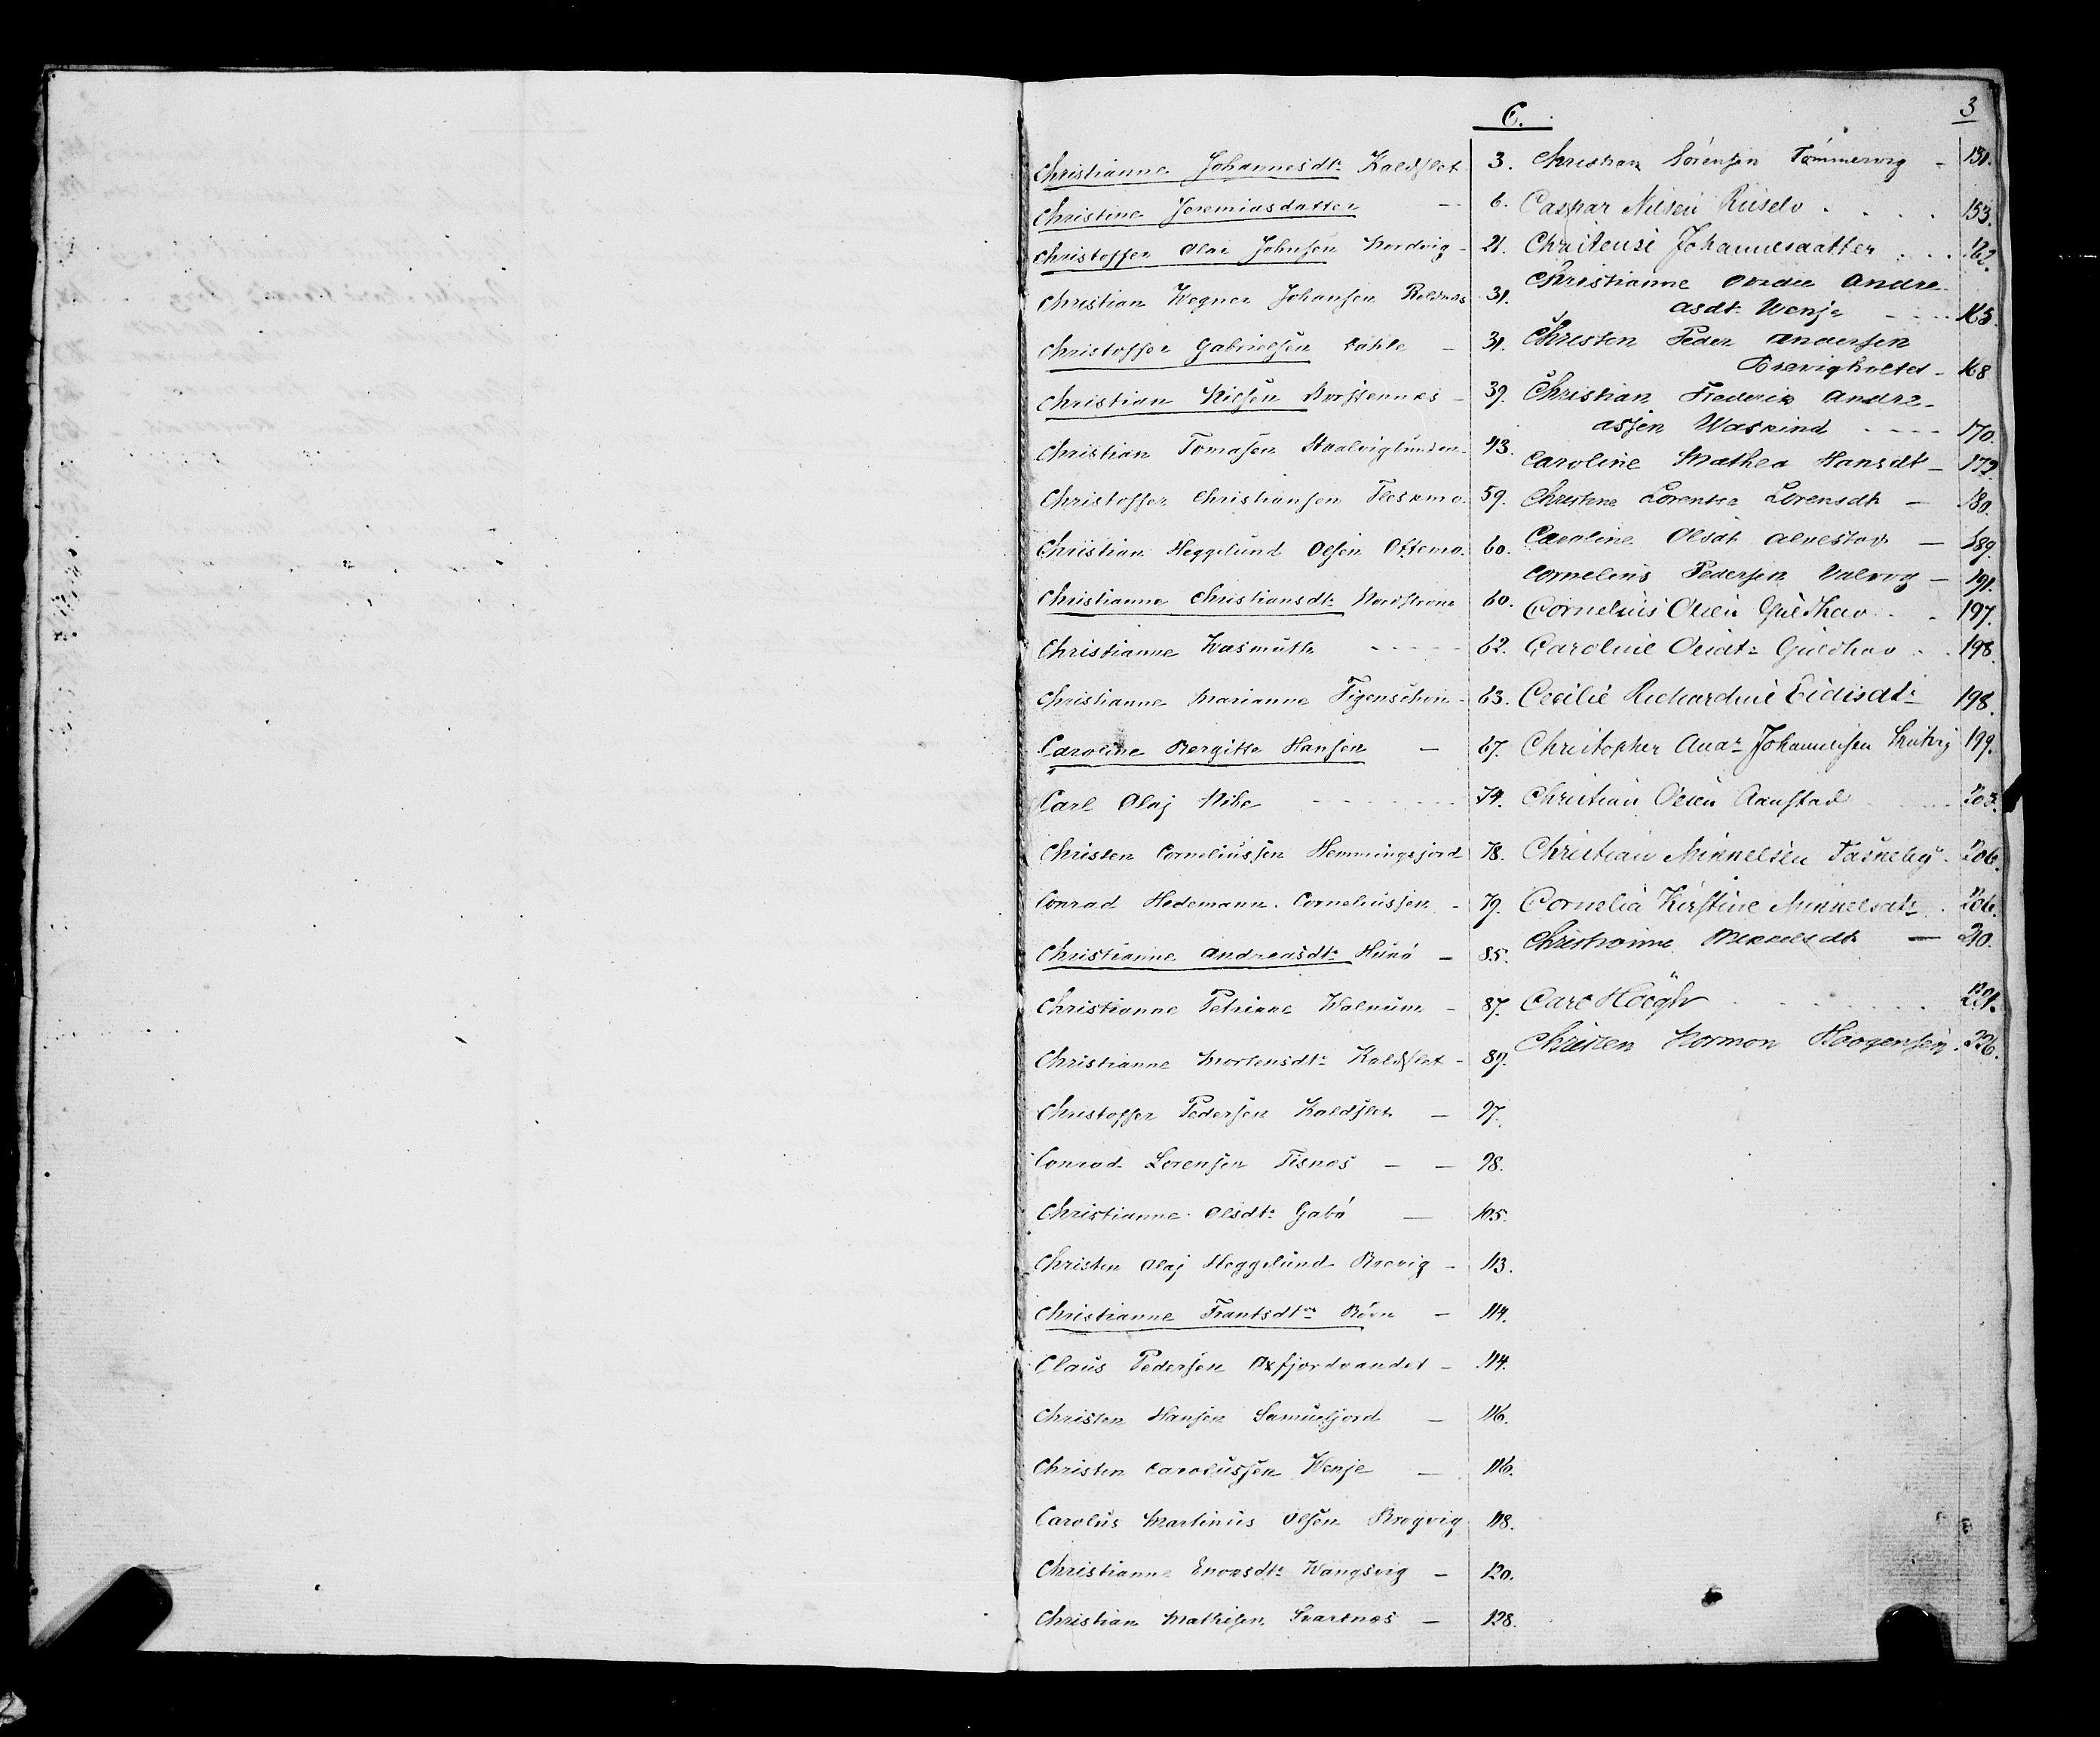 C.
3
Christianne Johannesdtr Kaldslet 3.
Christine Jeremiasdatter 6.
Christoffer Olai Johnsen Nordvig - 21.
Christian Wegner Johansen 31.
Christoffer Gabrielsen - 31.
Christian Nielsen - 39.
Christian Tomasen 43.
Christoffer Christiansen 59.
Christian Heggelund Olsen 60.
Christianne Christiansdtr 60.
Christianne Wasmuth - - - - 62.
Christianne Marianne Figenschou - 63.
Caroline Bergitte Hansen - 67.
Carl Olaj - - - - 74.
Christen Corneliussen Hemmingsjord 78.
Conrad Hedemann Corneliussen - 79.
Christianne Andreasdtr - 85.
Christianne Petrine Walnum - 87.
Christianne Mortensdtr Kaldslet - 89.
Christoffer Pedersen Kaldslet - 97.
Conrad Lorensen Tisnæs - - 98.
Christianne Olsdtr - 105.
Christen Olaj Heggelund Brevig - 113.
Christianne Frantsdtr - 114.
Claus Pedersen Oxfjordvandet - 114.
Christen Hansen - 116.
Christen Carolussen Wenje - 116.
Carolus Martinus Olsen 118.
Christianne Wangsvig - 120.
Christian Mathisen Svartnæs - 128.
Christian Sörensen Tömmervig - 131.
Caspar Nilsen . . . . 153.
Johannesdatter . . . 162.
Christianne Andre-
asdtr Wenje - - - - 165.
Christen Peder Andersen
- 168
Christian Frederik Andre-
assen - - - - 170.
Caroline Mathea Hansdtr - 172
Christine Lorentse Lorensdtr - 180.
Caroline Olsdtr - 189.
Cornelius Pedersen - 191.
Cornelius Olsen . . 197.
Caroline Olsdtr . . 198.
Cecilie Richardine 198.
Christopher Johannesen 199.
Christian Olsen Aanstad . . . . 203.
Christian Mikkelsen . 206.
Cornelia Kirstine Mikkelsdtr . 206.
Christianne Mikkelsdtr -
Carl . . . .
Christen Normon Haagensen .